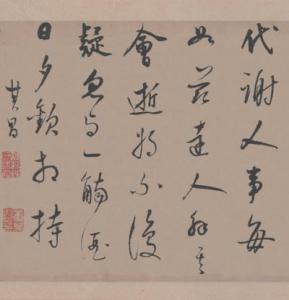 代謝人事每
如茲達人解其
會逝將不復
疑忽与一觴酒
日夕歡相持
其昌